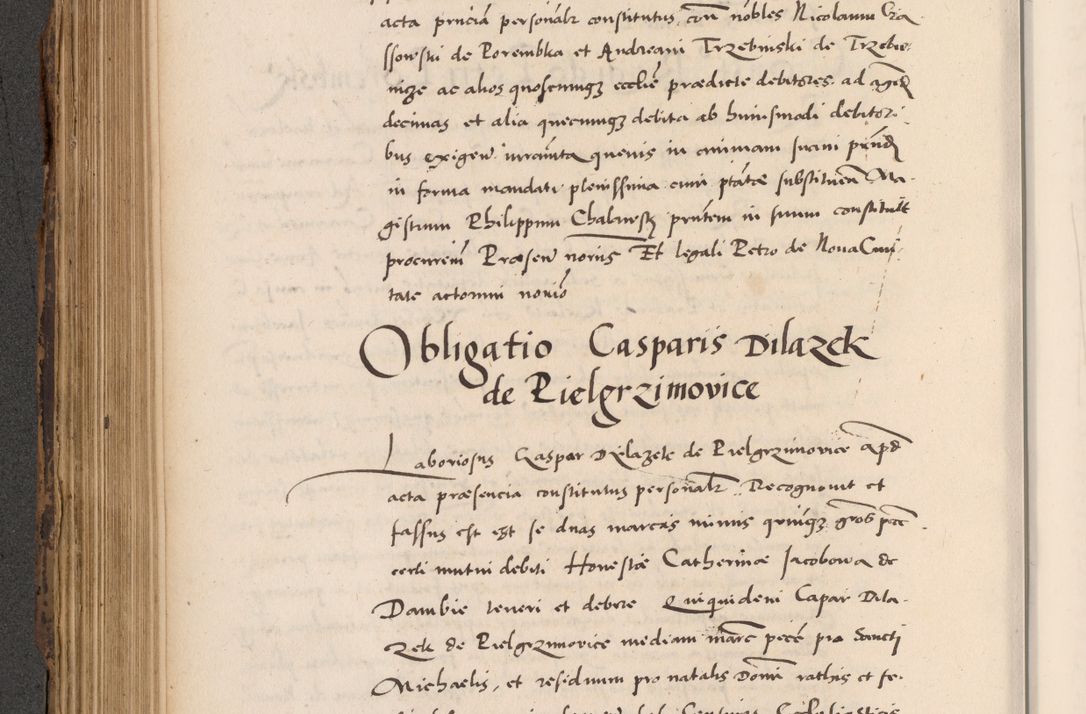 acta prnciā personalr constitutus con nobles Nicolaum Cra
ssowski de Porembka et Andreani Trzebinski de Trzebi
nicze ac alios quoscunqʒ eccliē praedicte debitores ad agend
decimas et alia quecunqʒ debita ab huiusmodi debitori
bus exigen iuramta quevis in animam suam
in forma mandati plenissima cum ptāte substituen Ma
gistrum Philippum prntem in suum constituit
procurem Praesen noriis Et legali Petro de Noua Ciui
tate actorum norio
Obligatio Casparis Dilazek
de Pielgrzimovice
Laboriosus Caspar Dilazek de Pielgrzimovice apd
acta praesencia constitutus personalr Recognouit et
fassus est se duas marcas minus quinqʒ gros pecc
certi mutui debiti Honestae Catherinae Jacobowa de
Dambie teneri et debere Quiquidem Capar Dila
zek de Pielgrzimovice mediam marc pecē pro Sancti
Michaelis, et residuum pro natalis Domi rathis et fe